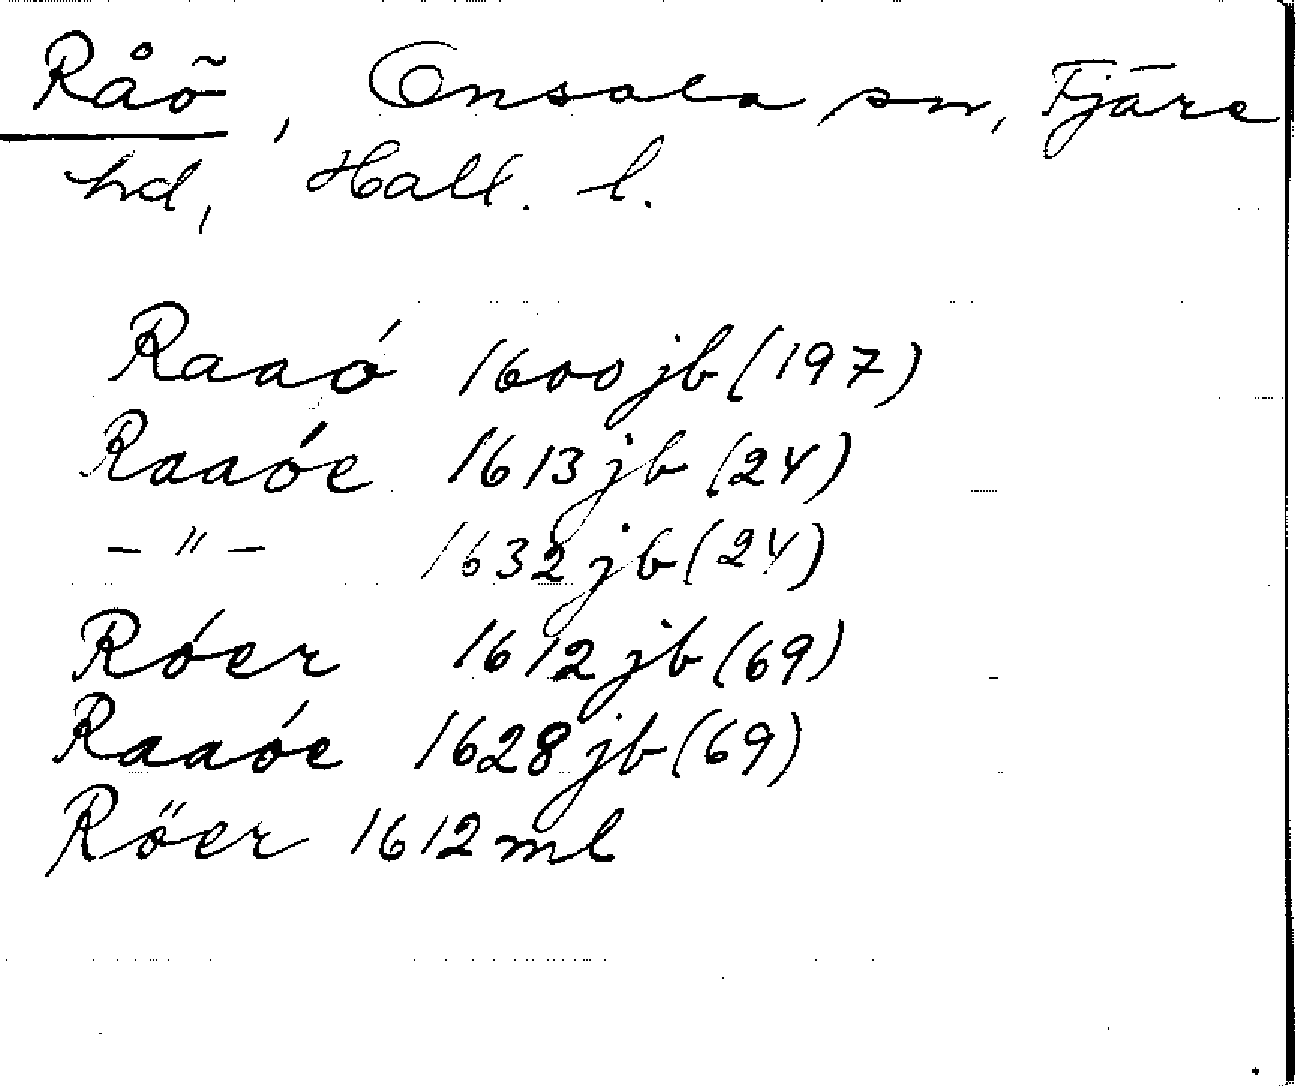 Råö, Onsala sn, Fjäre
hd, Hall. l.
Raaó 1600 jb (197)
Raaóe 1613 jb (24)
- " - 1632 jb (24)
Róer 1612 jb (69)
Raaóe 1628 jb (69)
Röer 1612 ml